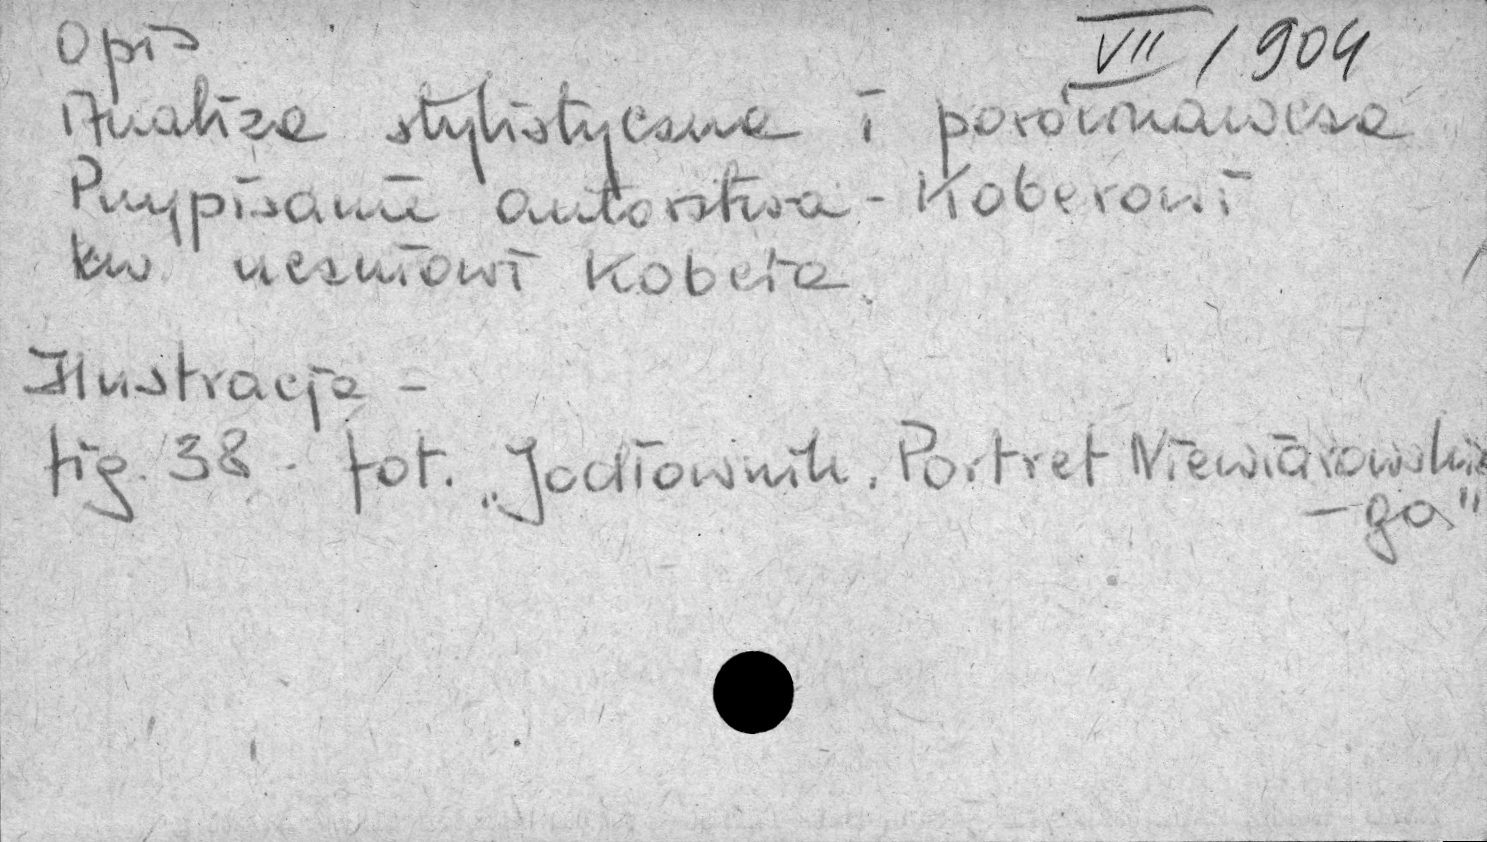 Opis
VII / 904
Analiza stylistyczna i porównawcza
Przypisanie autorstwa - Koberowi
uczniowi Kobera
Ilustracja -
fig. 38 - fot. „Jodłownik. Portret Niewiarowskie
- go"